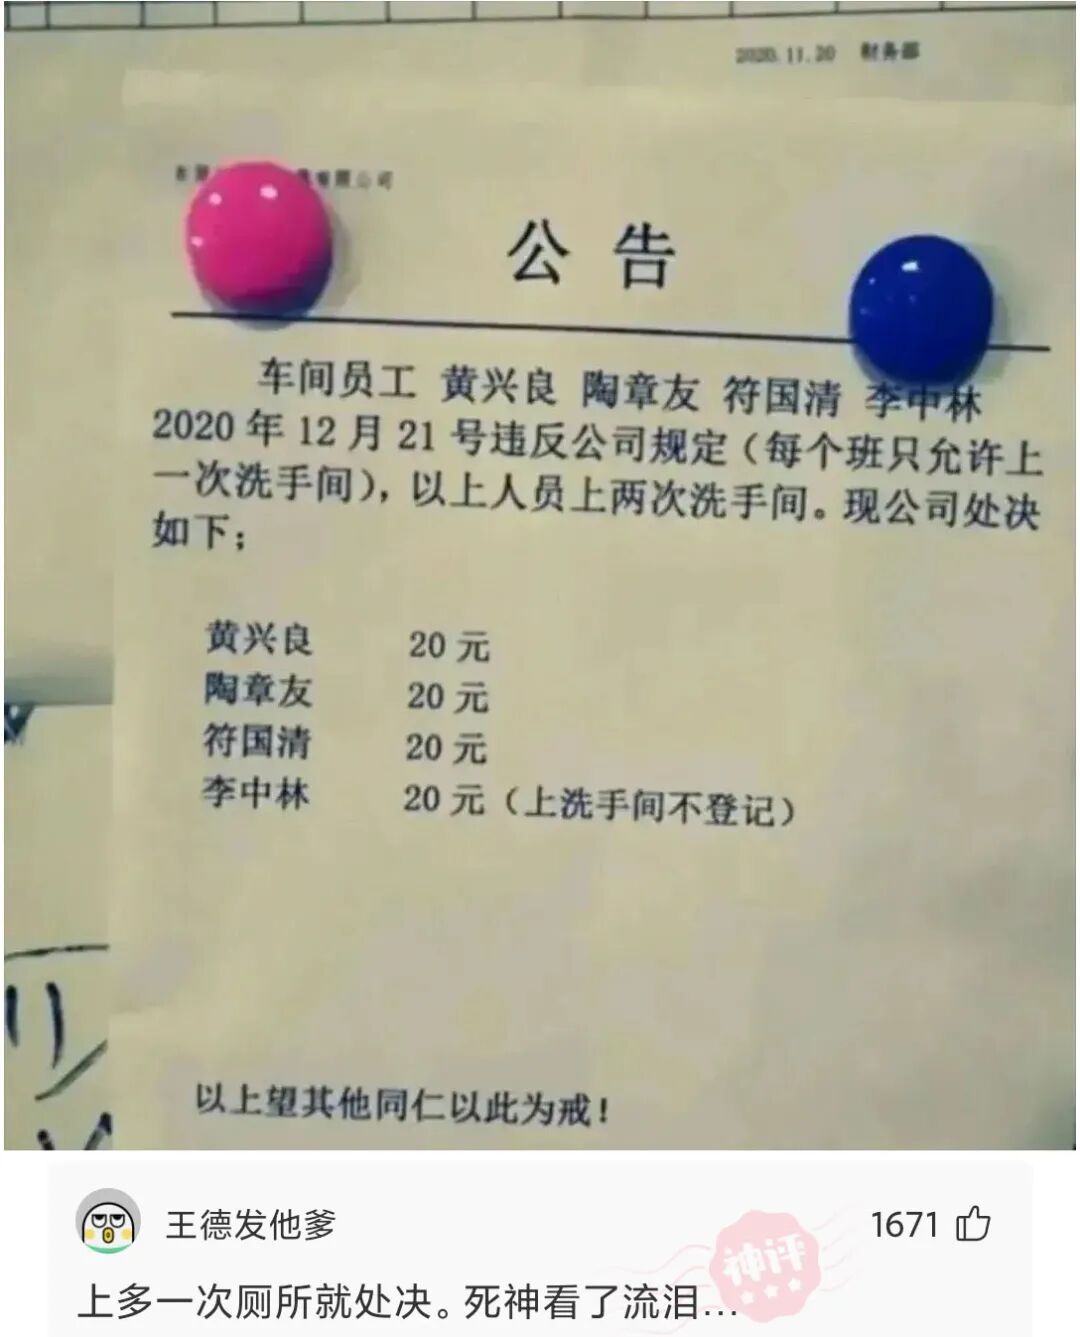 2020.11.20 财务部
有限公司
公告
车间员工 黄兴良 陶章友 符国清 李中林
2020年12月21号违反公司规定（每个班只允许上
一次洗手间），以上人员上两次洗手间。现公司处决
如下；
黄兴良 20元
陶章友 20元
符国清 20元
李中林 20元（上洗手间不登记）
以上望其他同仁以此为戒！
王德发他爹
1671
神评
上多一次厕所就处决。死神看了流泪...